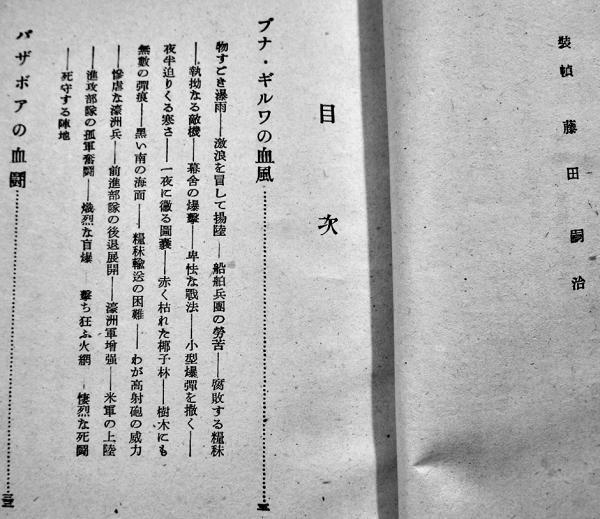 装幀 藤田嗣治
目次
ブナ・ギルワの血風
物すごき瀑雨――激浪を冒して揚陸――船舶兵團の勞苦――腐敗する糧秣
――執拗なる敵機――幕舎の爆撃――卑怯な戰法――小型爆彈を撒く――
夜半迫りくる寒さ――一夜に黴る圖嚢――赤く枯れた椰子林――樹木にも
無數の彈痕――黒い南の海面――糧秣輸送の困難――わが高射砲の威力
――慘虐な濠洲兵――前進部隊の後退展開――濠洲軍增强――米軍の上陸
――進攻部隊の孤軍奮鬪――熾烈な盲爆――擊ち狂ふ火網――悽烈な死鬪
――死守する陣地
バザボアの血鬪